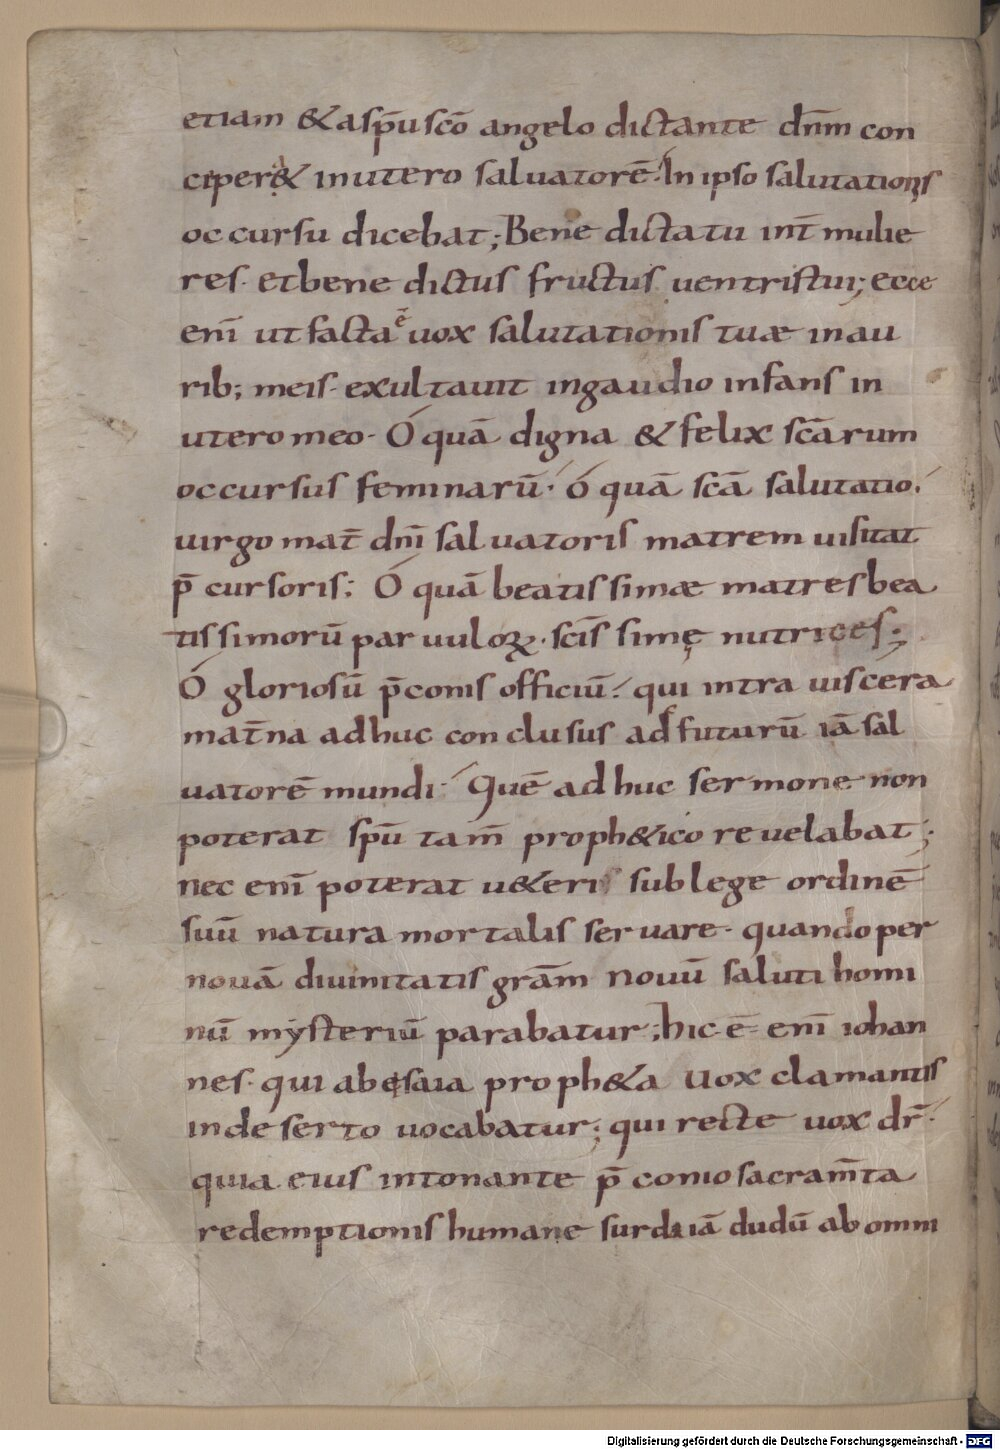 etiam & asp̄u sc̄o angelo dictante dn̄m con
ciper& inutero saluatorē. In ipso salutationis
occursu dicebat; Bene dicta tu int̄ mulie
res. et bene dictus fructus uentris tui; ecce
eni̅ ut facta ē uox salutationis tuæ in au
rib; meis. exultauit in gaudio infans in
utero meo. Ó quā digna & felix sc̄arum
occursus feminarū. ó quā sc̄a salutatio.
uirgo mat̄ dn̄i saluatoris matrem uisitat
p̄cursoris: Ó quā beatissimæ matres bea
tissimorū paruuloꝝ. sc̄issimę nutrices;
Ó gloriosū p̄conis officiū. qui intra uiscera
mat̄na adhuc conclusus adfuturū iā sal
uatorē mundi. Quē adhuc sermone non
poterat sp̄u tam̄ proph&ico reuelabat;
nec eni̅ poterat u&eris sub lege ordinē
suū natura mortalis seruare. quando per
nouā diuinitatis gr̄am nouū saluti homi
nū mẏsteriū parabatur; hic ē eni̅ iohan
nes. qui ab esaia proph&a uox clamantis
in deserto uocabatur; qui recte uox dr̄.
quia eius intonante p̄conio sacram̄ta
redemptionis humane surda iā dudū ab omni
Digitalisierung gefördert durch die Deutsche Forschungsgemeinschaft - DFG